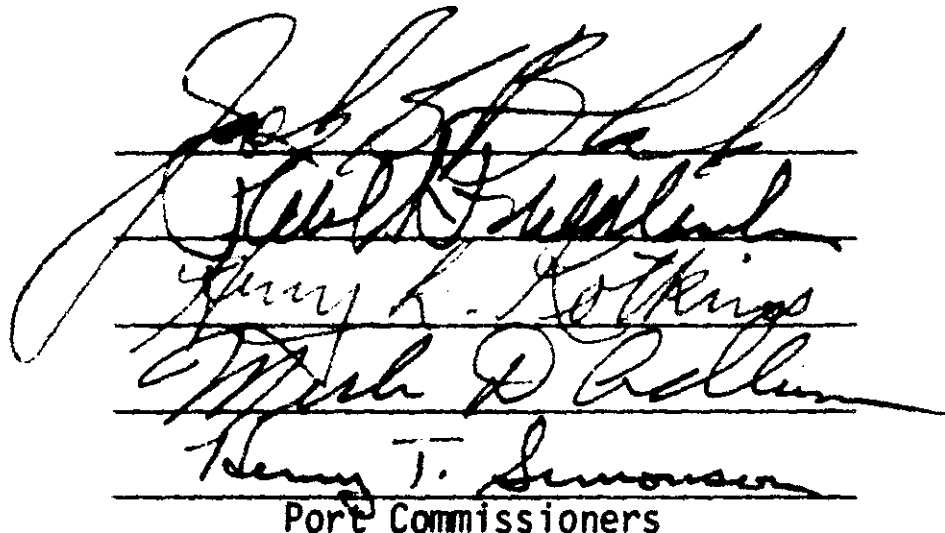 Jack Block
Paul Friedlander
Henry L. Kotkins
Merle D Adlum
Henry T. Simonson
Port Commissioners